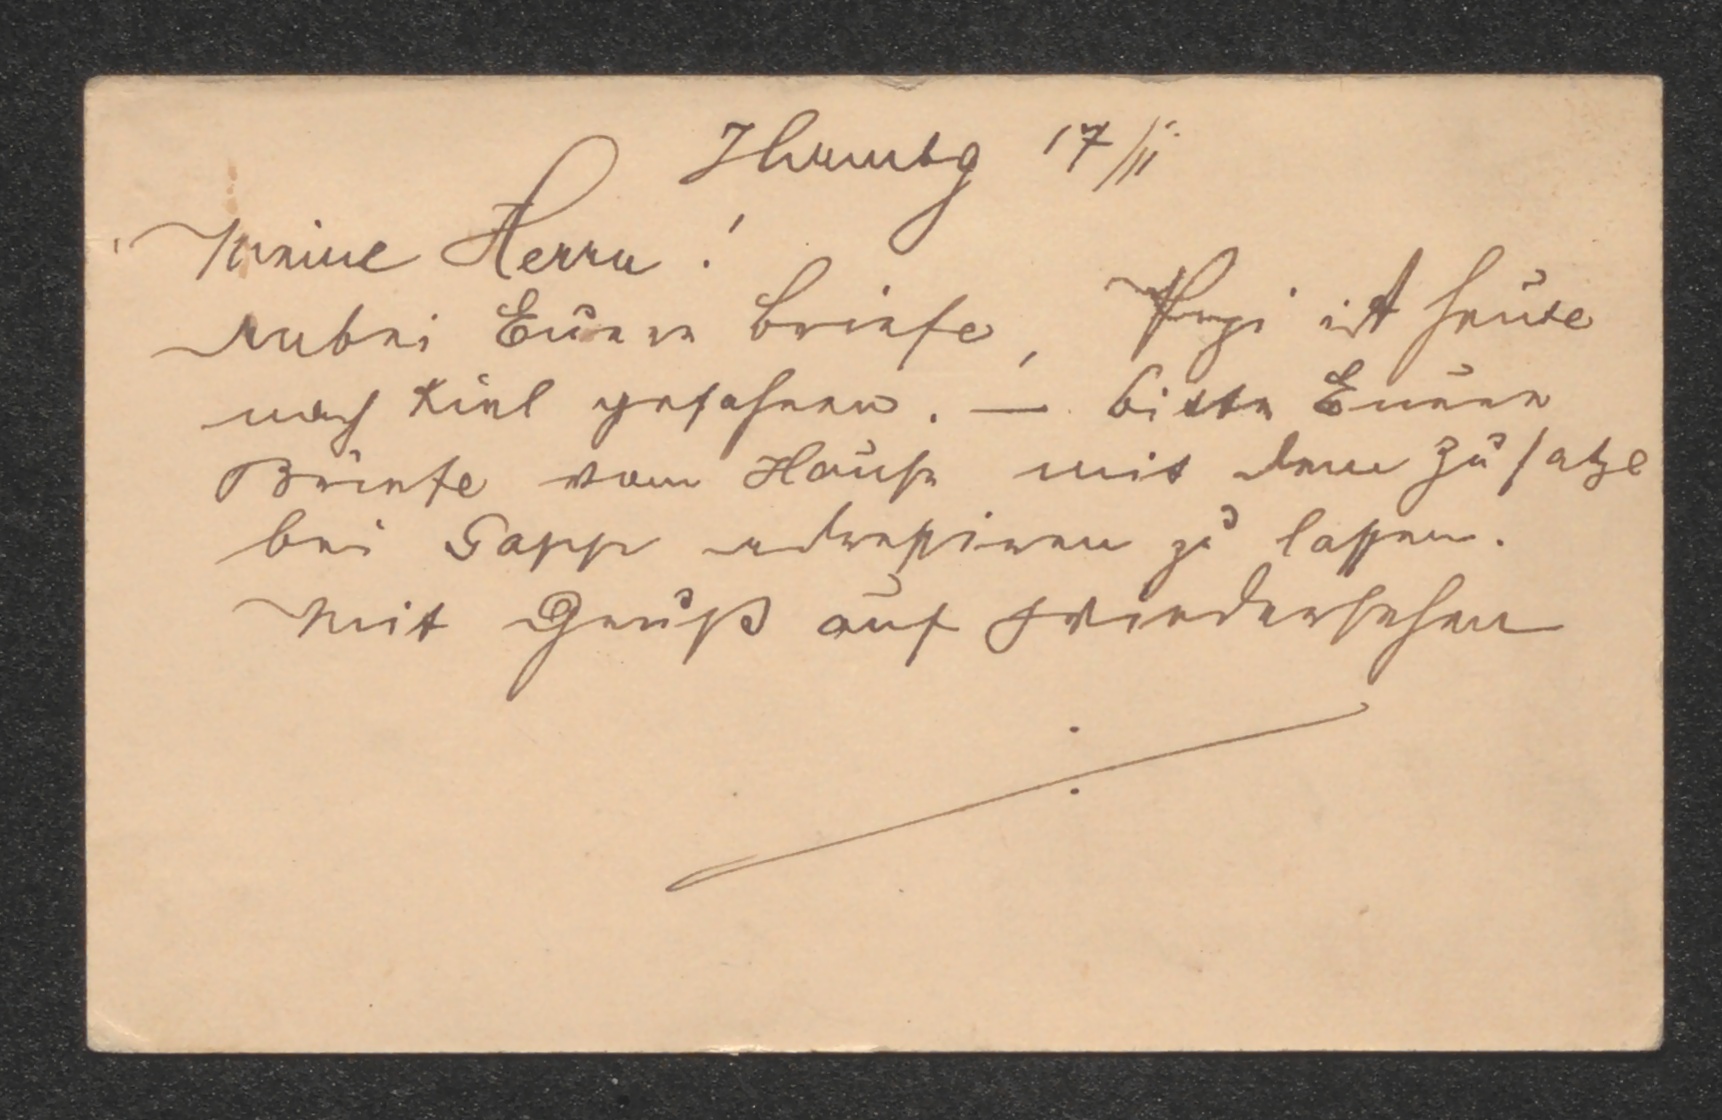 Hambg 17/II
Meine Herrn!
Anbei Euere Briefe, ist heute
nach Kiel gefahren. — bitte Euere
Briefe vom Hause mit dem Zusatze
bei Sapp adressiren zu lassen.
Mit Gruß auf Wiedersehen